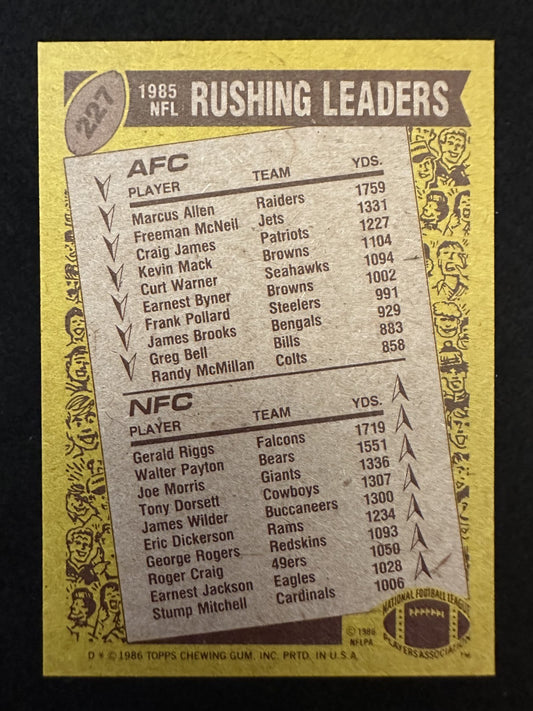 227
1985 NFL RUSHING LEADERS
AFC
PLAYER TEAM YDS.
Marcus Allen Raiders 1759
Freeman McNeil Jets 1331
Craig James Patriots 1227
Kevin Mack Browns 1104
Curt Warner Seahawks 1094
Earnest Byner Browns 1002
Frank Pollard Steelers 991
James Brooks Bengals 929
Greg Bell Bills 883
Randy McMillan Colts 858
NFC
PLAYER TEAM YDS.
Gerald Riggs Falcons 1719
Walter Payton Bears 1551
Joe Morris Giants 1336
Tony Dorsett Cowboys 1307
James Wilder Buccaneers 1300
Eric Dickerson Rams 1234
George Rogers Redskins 1093
Roger Craig 49ers 1050
Earnest Jackson Eagles 1028
Stump Mitchell Cardinals 1006
NATIONAL FOOTBALL LEAGUE
PLAYERS ASSOCIATION
TM
© 1986
NFLPA
D * © 1986 TOPPS CHEWING GUM, INC. PRTD. IN U.S.A.